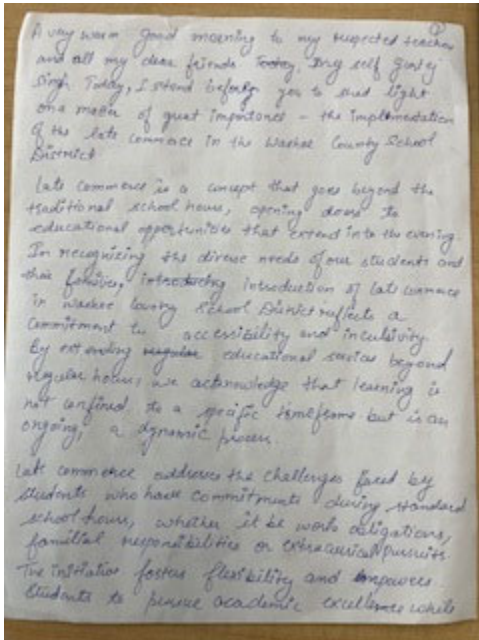 ①
A very warm good morning to my respected teacher
and all my dear friends Today, Imy self Gurtej
singh Today, I stand before you to shed light
on a matter of great importance - the implementation
of the late commerce in the Washoe County School
District.
Late commerce is a concept that goes beyond the
traditional school hours, opening doors to
educational opportunities that extend into the evening.
In recognizing the diverse needs of our students and
their families, introducing introduction of late commerce
in washoe County School District reflects a
commitment to accessibility and inculsivity.
By extending regular educational services beyond
regular hours, we acknowledge that learning is
not confined to a specific timeframe but is an
ongoing, a dynamic process.
Late commerce addresses the challenges faced by
students who have commitments during standard
school hours, whether it be work obligations,
familial responsibilities or extracurricular pursuits.
The initiative fosters flexibility and empowers
students to pursue academic excellence while